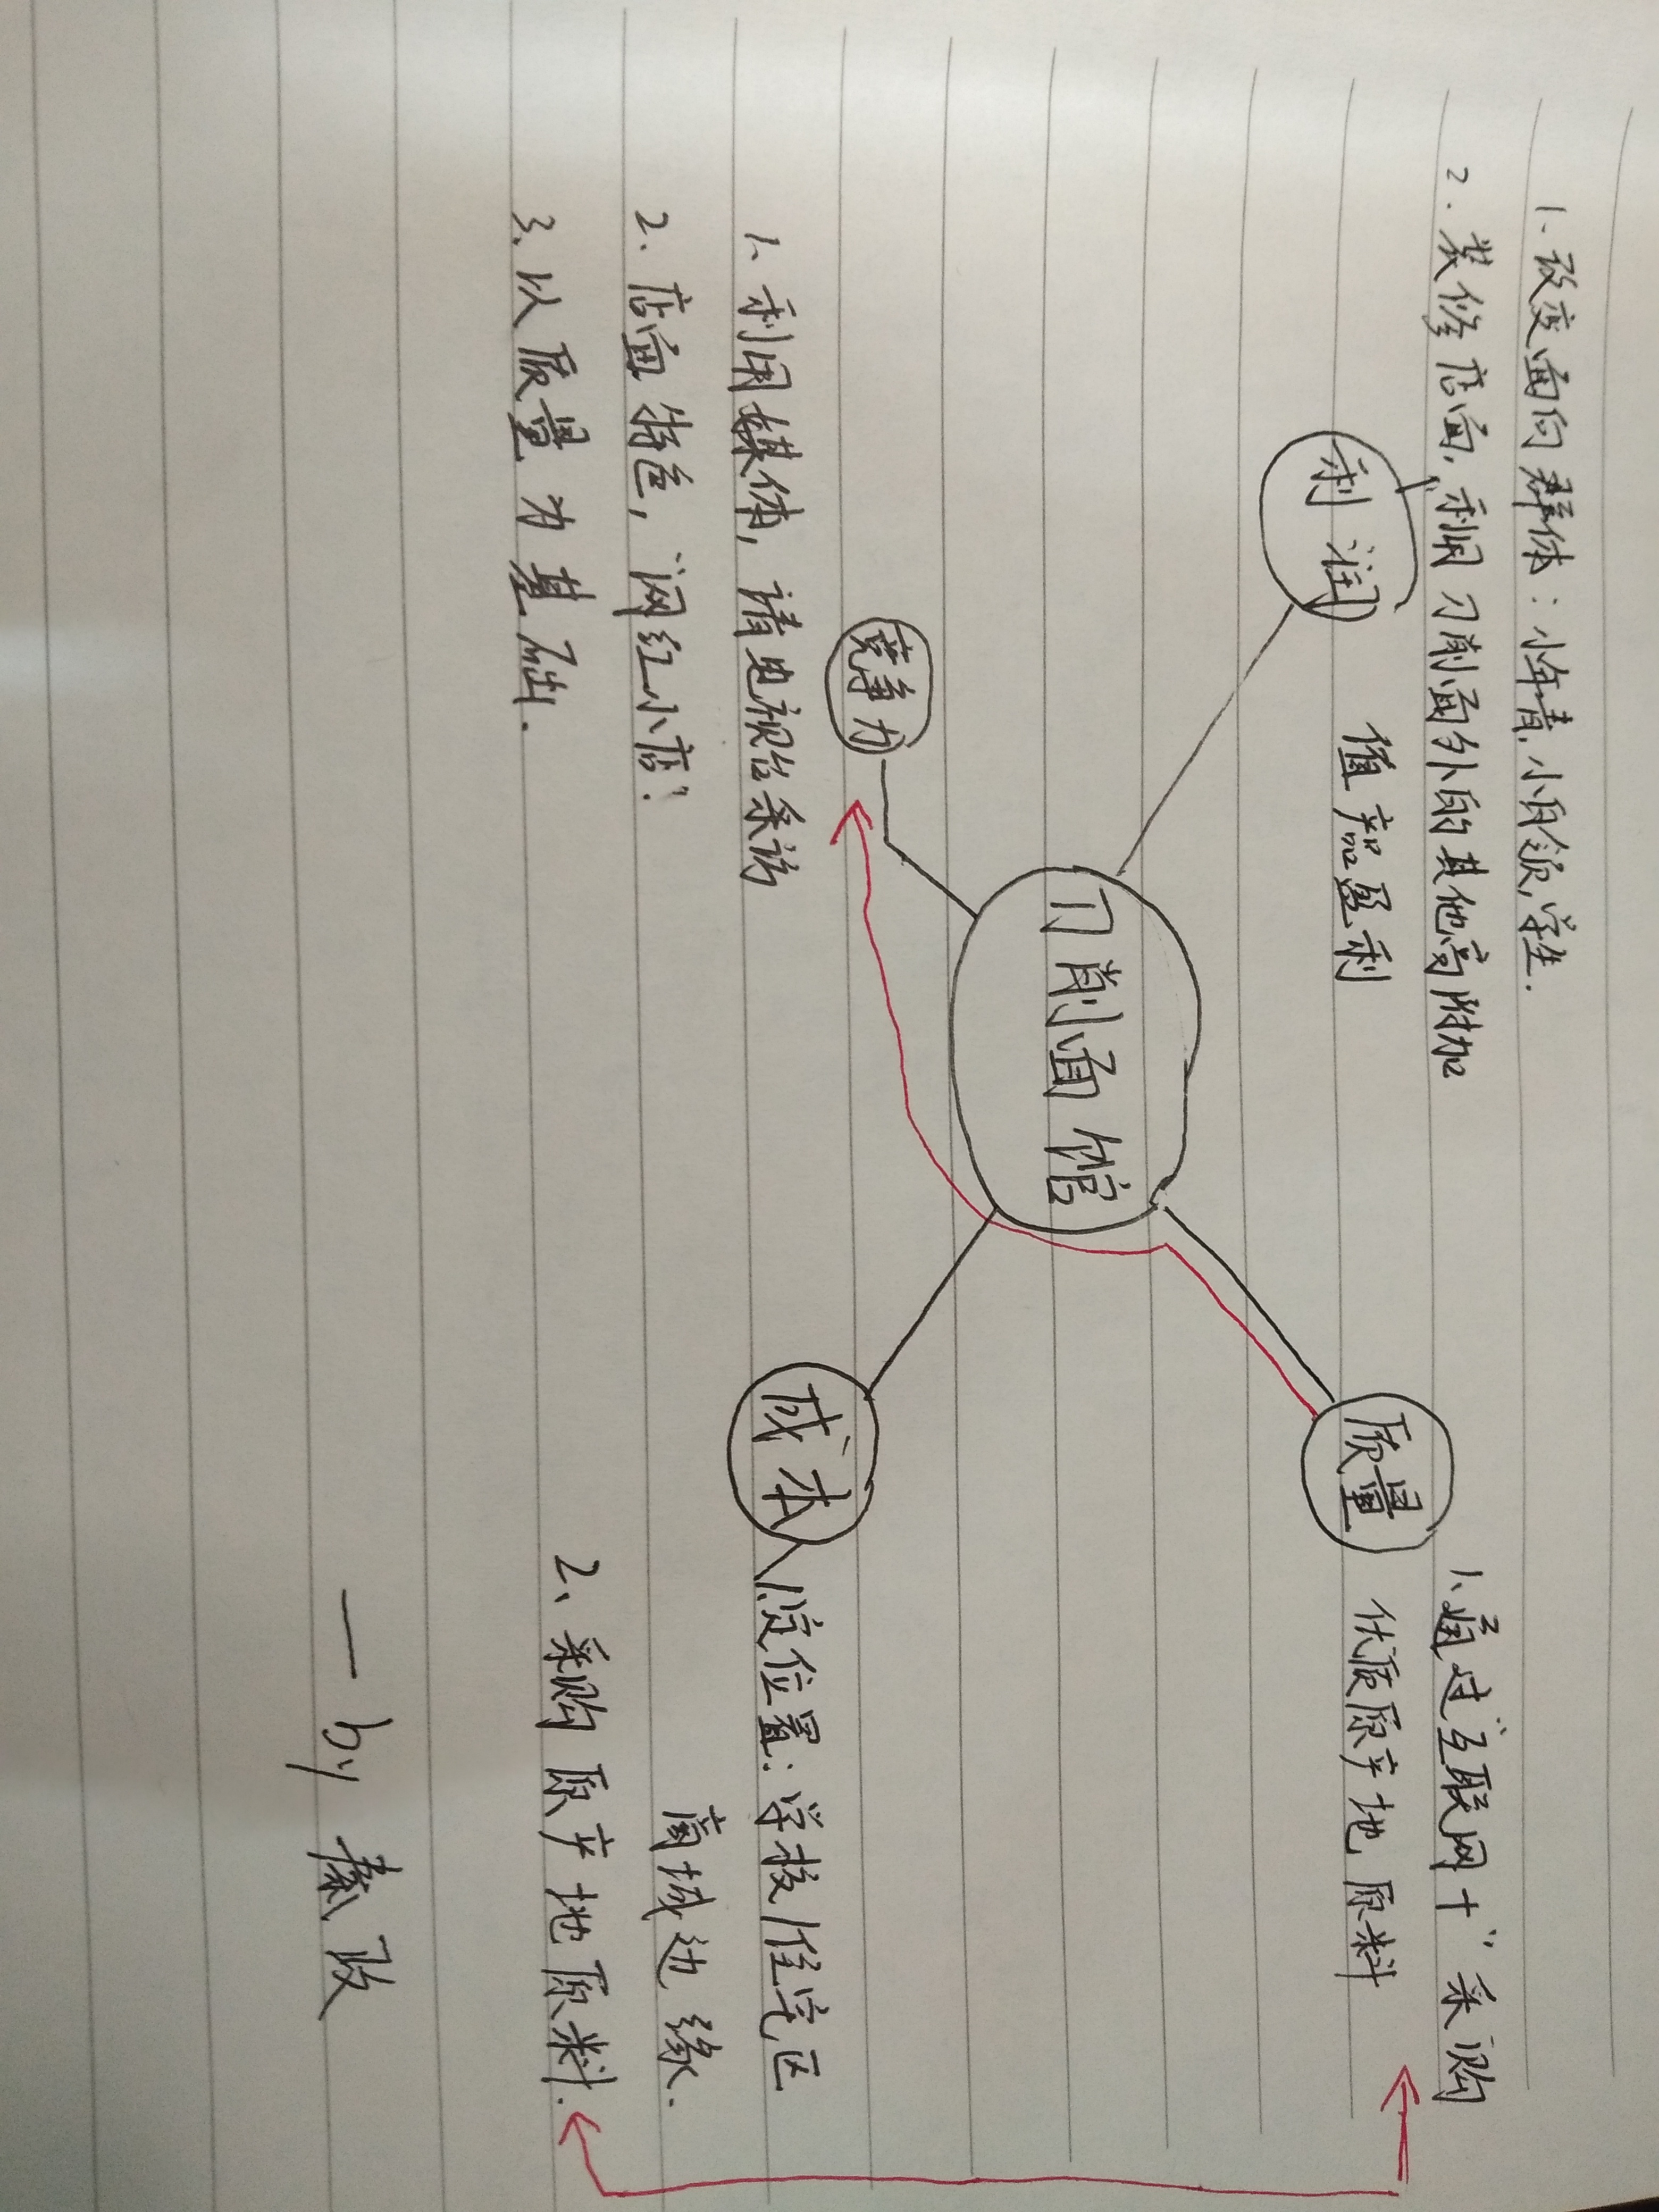 1、改变面向群体：小年青，小白领，学生.
2.装修店面，利用刀削面外的其他高附加
值产品盈利
利润
1、通过"互联网十"采购
优质原产地原料
质量
刀削面馆
竞争力
1、利用媒体，请电视台采访
2、店面特色，网红小店！
3、以质量为基础.
成本
1、定位置：学校/住宅区
商城边缘.
2、采购原产地原料.
秦政